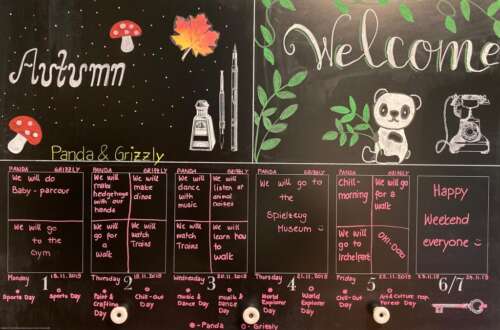 Autumn
Welcome
Panda & Grizzly
PANDA GRIZZLY
We will do
Baby-parcour
We will go
to the
Gym
PANDA GRIZZLY
We will
make
hedgehogs
with our
hands
We will
make
dinos
We will
go for
a
walk
We will
watch
Trains
PANDA GRIZZLY
We will
dance
with
music
We will
listen to
animal
noises
We will
watch
Trains
We will
learn how
to
walk
PANDA GRIZZLY
We will go to
the
Spielzeug
Museum
PANDA GRIZZLY
Chill-
morning
We will go
for a
walk
We will
go to
Irchelpark
OHI-DOO
Happy
Weekend
everyone
Monday 1 18.11.2019
Sports Day Sports Day
Thursday 2 19.11.2019
Paint &
Crafting
Day
Chill-Out
Day
Wednesday 3 20.11.2019
music &
Dance Day
musik &
Dance
Day
Thursday 4 21.11.2019
World
Explorer
Day
World
Explorer
Day
Friday 5 22.11.2019
Chill-Out
Day
Art & Culture
Forest Day
6/7
23.11.19 24.11.19
- Panda - Grizzly